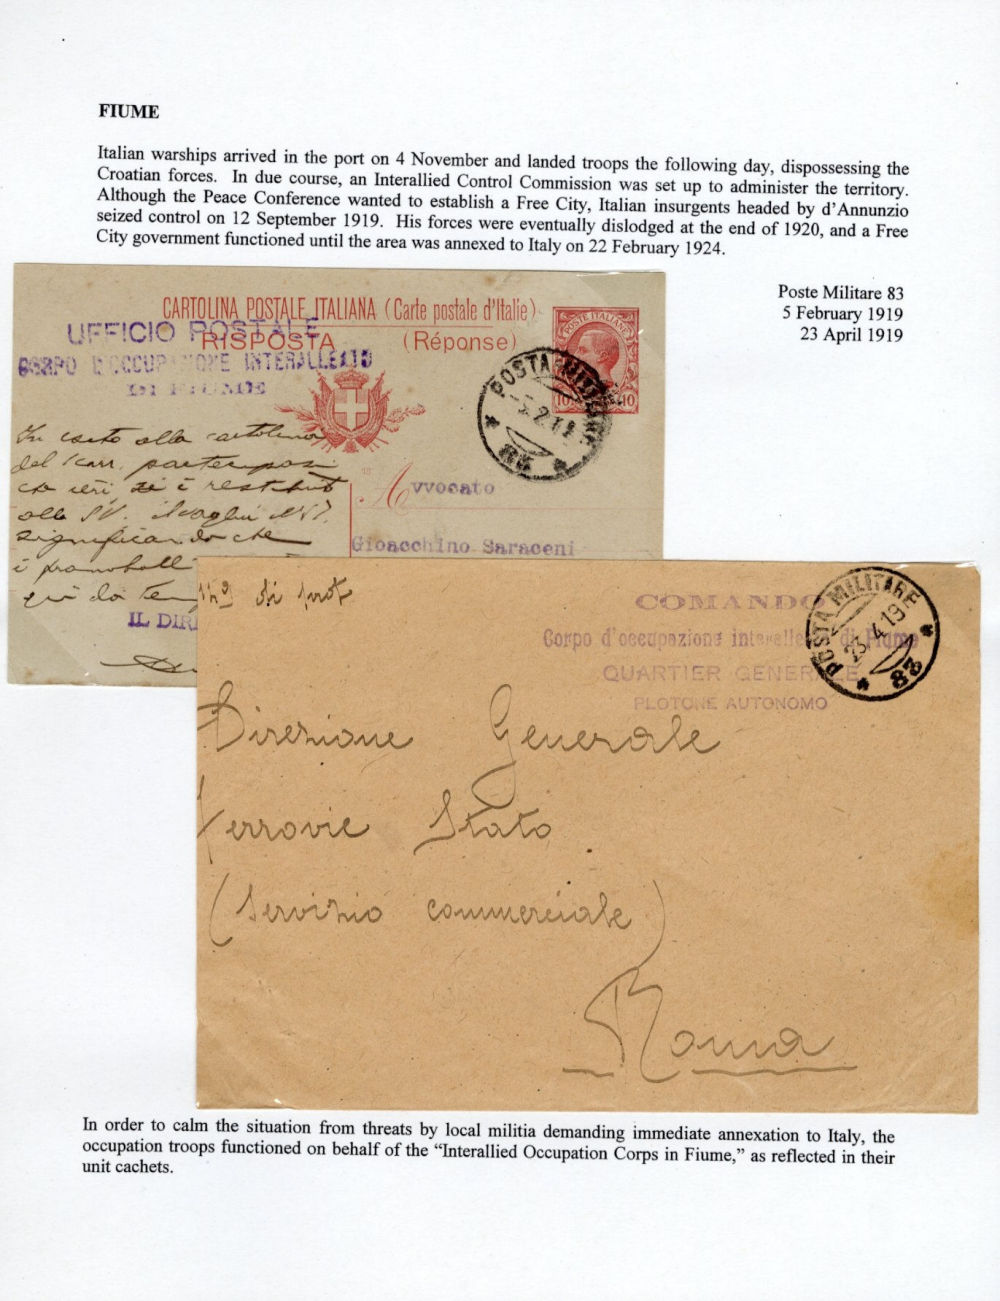 FIUME
Italian warships arrived in the port on 4 November and landed troops the following day, dispossessing the
Croatian forces. In due course, an Interallied Control Commission was set up to administer the territory.
Although the Peace Conference wanted to establish a Free City, Italian insurgents headed by d'Annunzio
seized control on 12 September 1919. His forces were eventually dislodged at the end of 1920, and a Free
City government functioned until the area was annexed to Italy on 22 February 1924.
Poste Militare 83
5 February 1919
23 April 1919
CARTOLINA POSTALE ITALIANA (Carte postale d'Italie)
RISPOSTA (Réponse)
UFFICIO POSTALE
CORPO D'OCCUPAZIONE INTERALLEATO
DI FIUME
POSTE ITALIANE
10 10
POSTA MILITARE
83
In esito alla cartolina
del
ieri, si è
alla SV.
significando che
i francobolli
Avvocato
Gioacchino Saraceni
IL DIR
di prot
COMANDO
Corpo d'occupazione interalleato di Fiume
QUARTIER GENERALE
PLOTONE AUTONOMO
POSTA MILITARE
23.4.19
83
Direzione Generale
Ferrovie Stato
(Servizio commerciale)
Roma
In order to calm the situation from threats by local militia demanding immediate annexation to Italy, the
occupation troops functioned on behalf of the “Interallied Occupation Corps in Fiume,” as reflected in their
unit cachets.